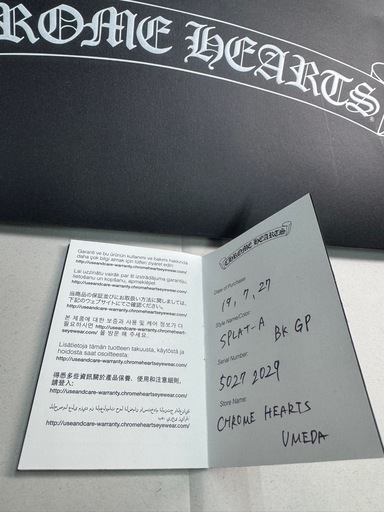 ROME HEARTS
Garanti ve bu ürünün kullanımı ve bakımı hakkında
daha çok bilgi almak için lütfen ziyaret edin:
http://useandcare-warranty.chromeheartseyewear.com/
Lai uzzinātu vairāk par šī izstrādājuma garantiju,
lietošanu un kopšanu, apmeklējiet
http://useandcare-warranty.chromeheartseyewear.com/
当商品の保証並びにお取扱い方法に関しましては、
下記のウェブサイトにてご確認下さい。
http://useandcare-warranty.chromeheartseyewear.com/
본 제품에 대한 보증과 사용 및 케어 정보가 더
필요하시면 http://useandcare-warranty.chromehearts
eyewear.com/ 를 방문 해 주세요.
Lisätietoja tämän tuotteen takuusta, käytöstä ja
hoidosta saat osoitteesta:
http://useandcare-warranty.chromeheartseyewear.com/
得悉多些資訊關於產品保養、使用和注意細則,
請登入:
http://useandcare-warranty.chromeheartseyewear.com/
http://useandcare-warranty.chromeheartseyewear.com/
CHROME HEARTS
Date of Purchase:
19, 7, 27
Style Name/Color:
SPLAT-A BK GP
Serial Number:
5027 2029
Store Name:
CHROME HEARTS
UMEDA